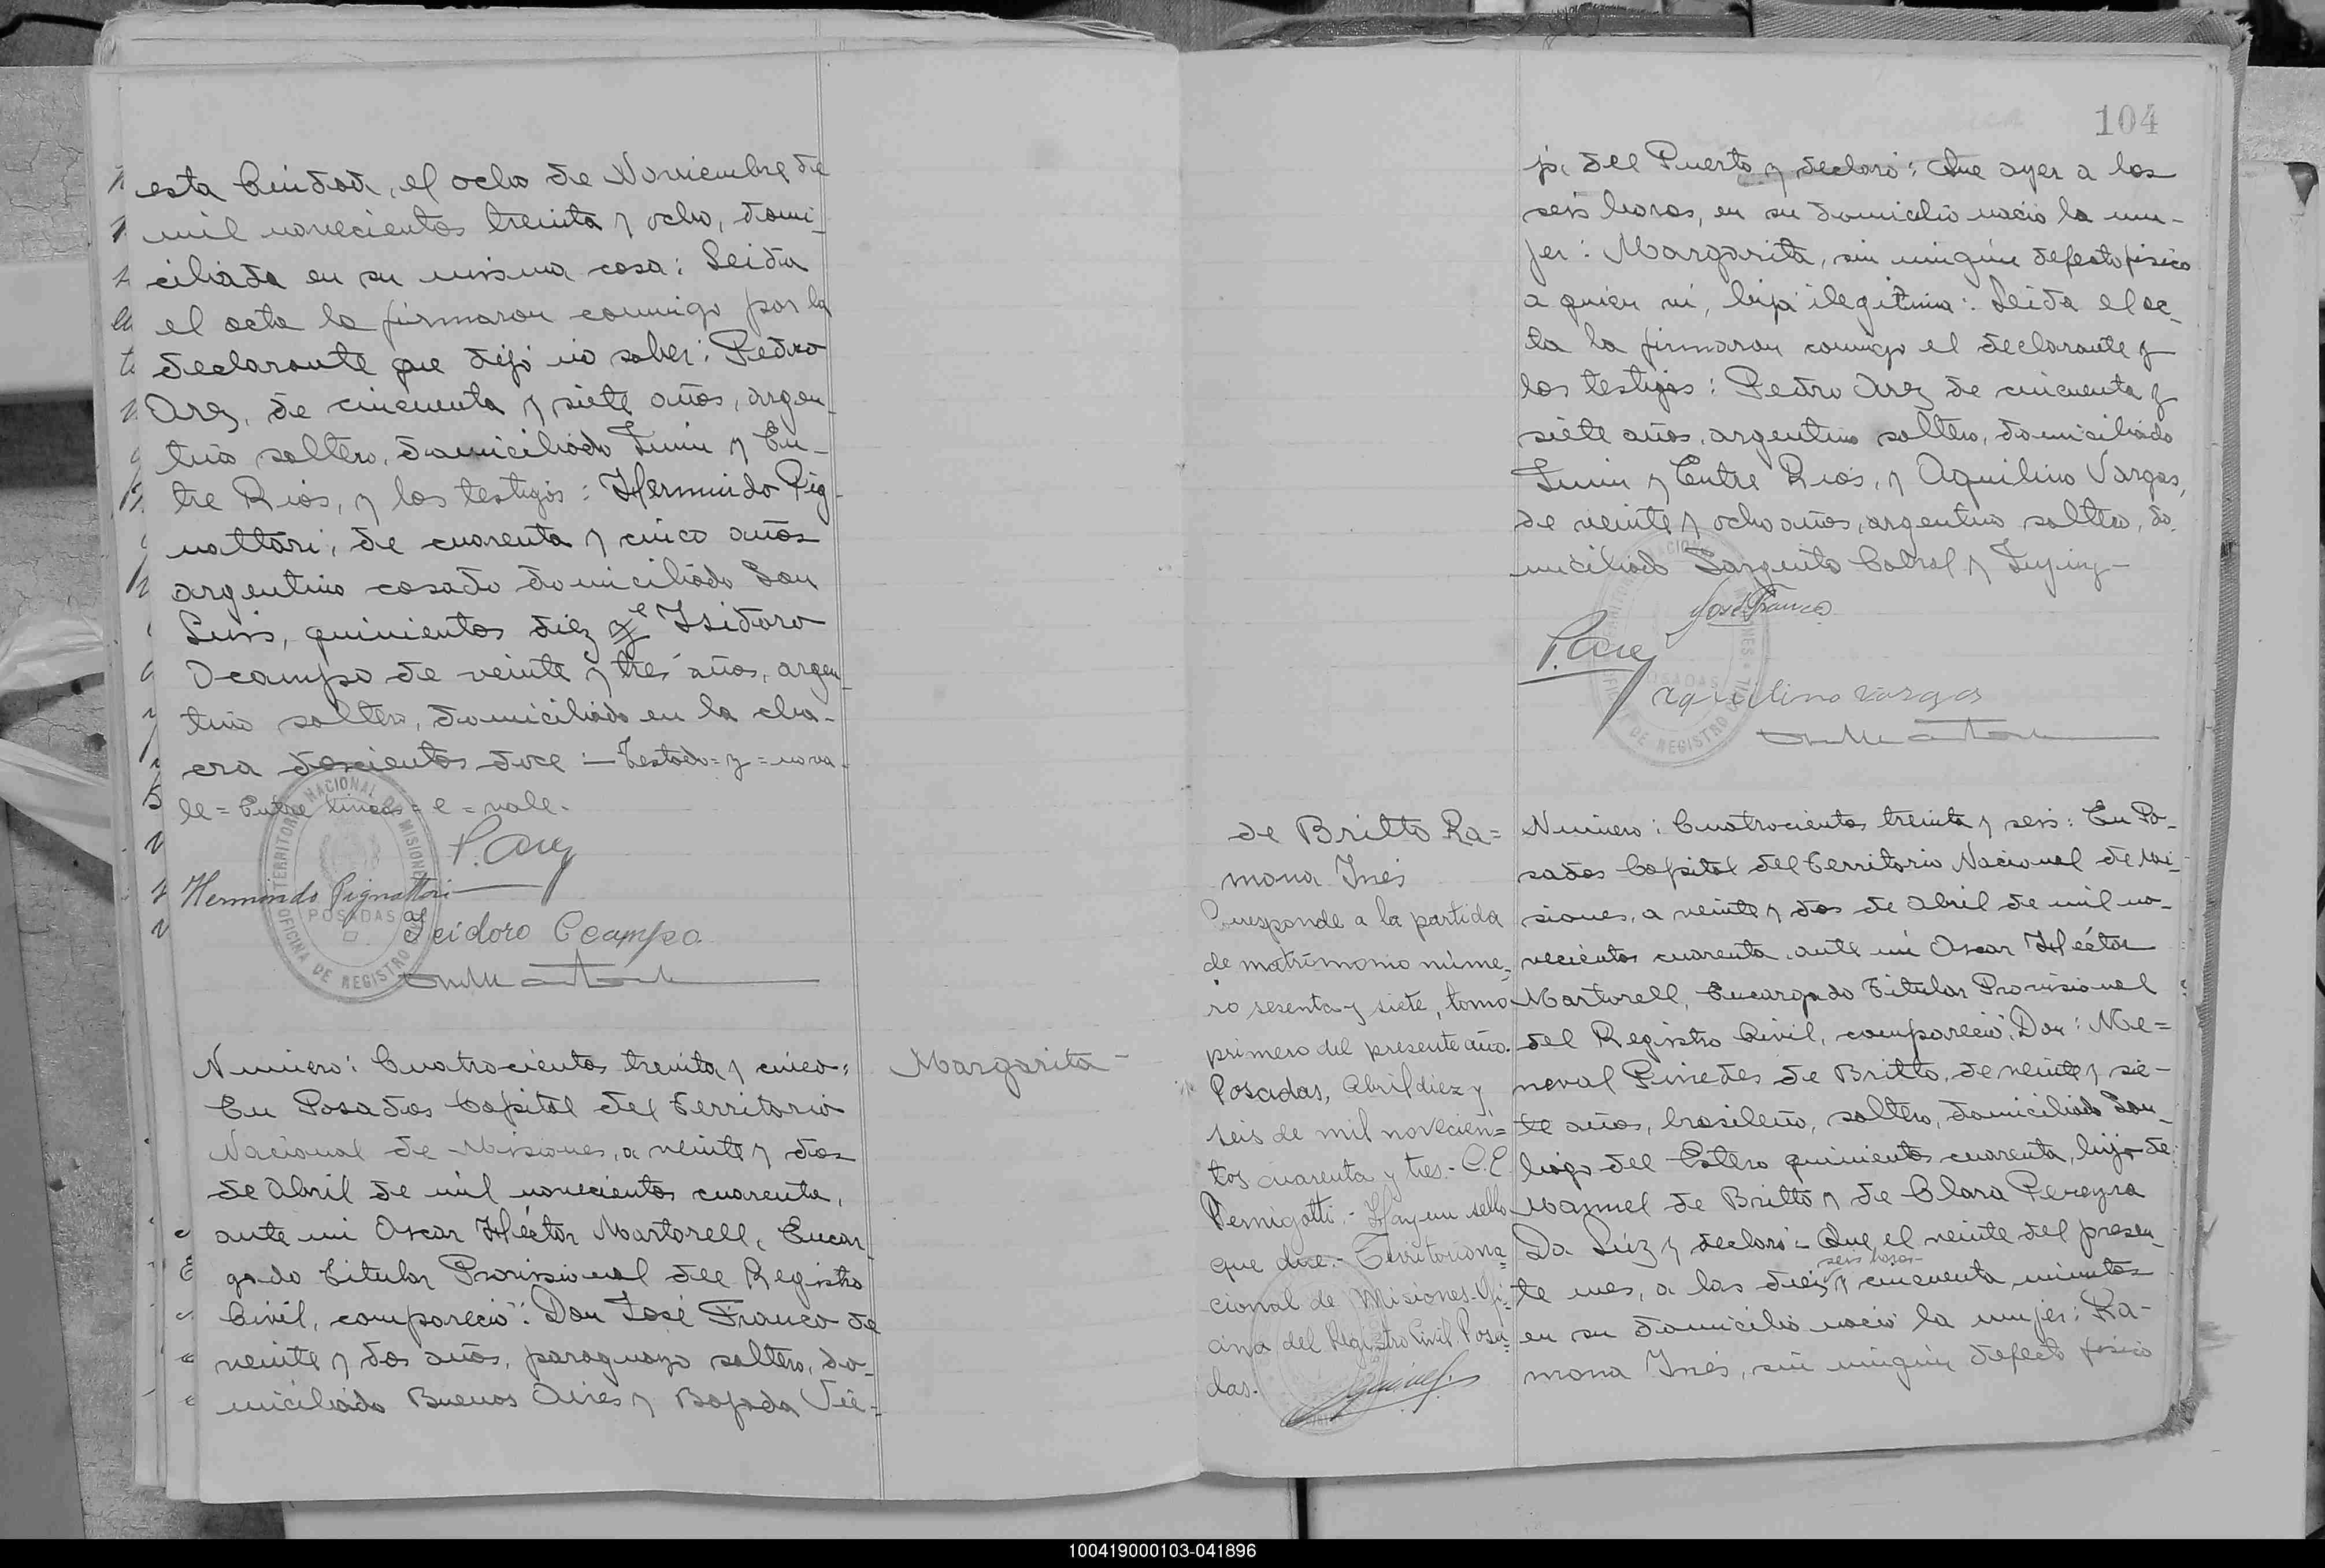 esta Ciudad, el ocho de Noviembre de
mil novecientos treinta y ocho, domi-
ciliada en su misma casa: Leida
el acta la firmaron conmigo por la
declarante que dijo no saber: Pedro
Arez, de cincuenta y siete años, argen-
tino soltero, domiciliado Junin y En-
tre Rios, y los testigos: Hermindo Pig-
nattari, de cuarenta y cinco años
argentino casado domiciliado San
Luis, quinientos diez y e Isidoro
Ocampo de veinte y tres años, argen-
tino soltero, domiciliado en la cha-
cra doscientos doce:- Testado=y=no va-
le=Entre lineas=e=vale.
P. Arez
Hermindo Pignattari
Isidoro Ocampo
TERRITORIO NACIONAL DE MISIONES
POSADAS
OFICINA DE REGISTRO CIVIL
Numero: Cuatrocientos treinta y cinco:
En Posadas Capital del Territorio
Nacional de Misiones, a veinte y dos
de Abril de mil novecientos cuarenta,
ante mi Oscar Héctor Martorell, Encar-
gado Titular Provisional del Registro
Civil, compareció: Don José Franco de
veinte y dos años, paraguayo soltero, do-
miciliado Buenos Aires y Bajada Vie-
Margarita-
104
ja del Puerto y declaró: Que ayer a las
seis horas, en su domicilio nació la mu-
jer: Margarita, sin ningún defecto fisico
a quien vi, hija ilegitima: Leida el ac-
ta la firmaron conmigo el declarante y
los testigos: Pedro Arez de cincuenta y
siete años, argentino soltero, domiciliado
Junin y Entre Rios, y Aquilino Vargas,
de veinte y ocho años, argentino soltero, do-
miciliado Sargento Cabral y
José Franco
P. Arez
aquilino vargas
POSADAS
DE REGISTRO CIVIL
de Britto Ra=
mona Inés
Corresponde a la partida
de matrimonio núme-
ro sesenta y siete, tomo
primero del presente año.
Posadas, Abril diez y
seis de mil novecien=
tos cuarenta y tres.- C.E.
Pernigotti.- Hay un sello
que dice.- Territorio na=
cional de Misiones-Ofi-
cina del Registro Civil. Posa=
das.
Numero: Cuatrocientos treinta y seis: En Po-
sadas Capital del Territorio Nacional de Mi-
siones, a veinte y dos de Abril de mil no-
vecientos cuarenta, ante mi Oscar Héctor
Martorell, Encargado Titular Provisional
del Registro Civil, compareció: Don: Me=
neval Piriedes de Britto, de veinte y sie-
te años, brasileño, soltero, domiciliado San-
tiago del Estero quinientos cuarenta, hijo de
Manuel de Britto y de Clara Pereyra
Da Luz y declaró:- Que el veinte del presen-
seis horas
te mes, a las diez y cincuenta minutos
en su domicilio nació la mujer: Ra-
mona Inés, sin ningún defecto fisico
100419000103-041896